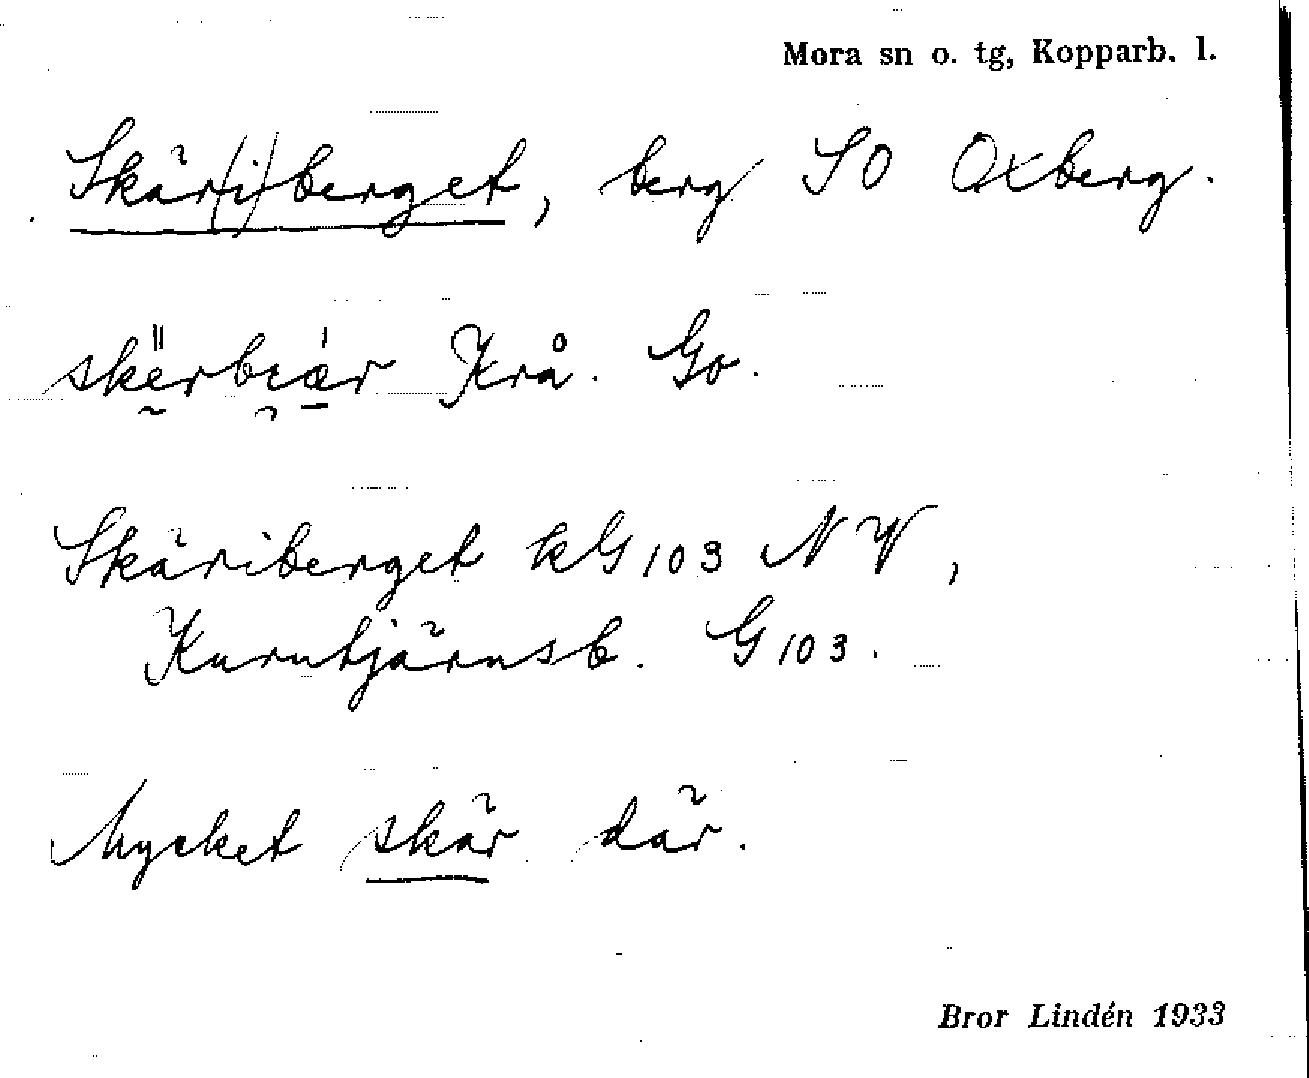 Mora sn o. tg, Kopparb. l.
Skär(i)berget, berg SO Oxberg.
Krå. Go.
Skäriberget kG103 NV,
Kurutjärnsb. G103.
Mycket skär där.
Bror Lindén 1933